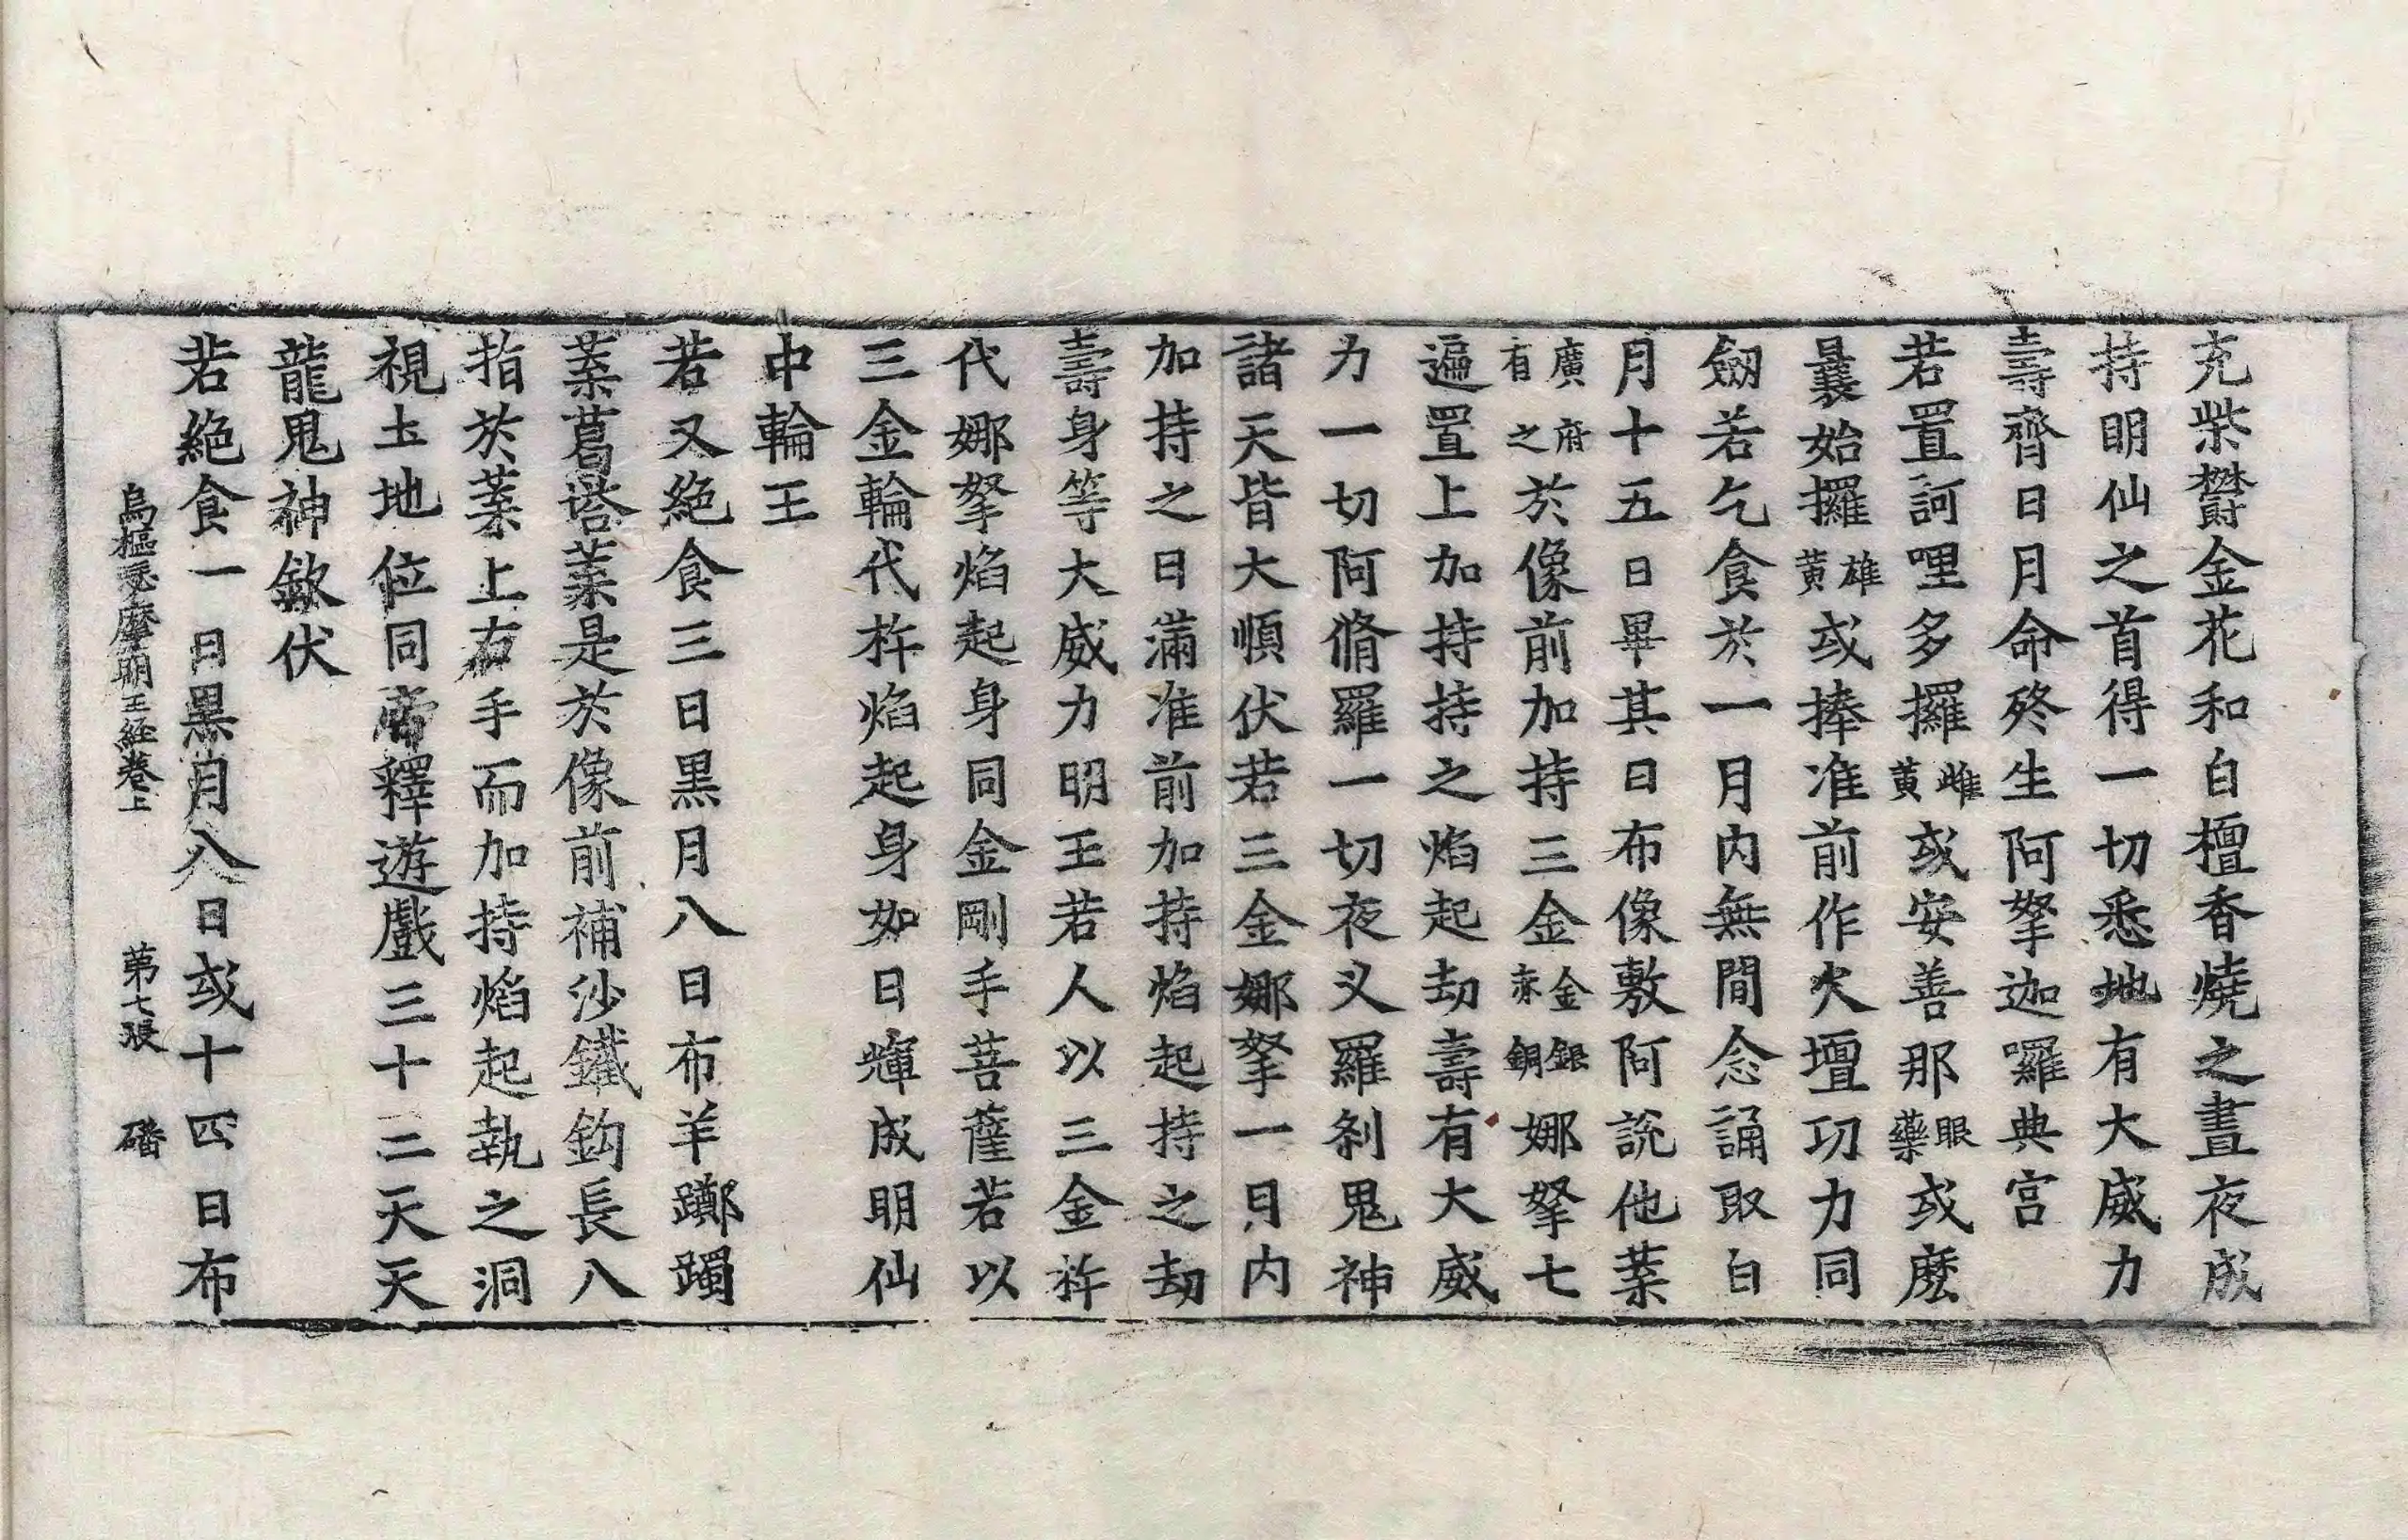 充柴欝金花和白檀香燒之晝夜成
持明仙之首得一切悉地有大威力
壽齊日月命終生阿拏迦囉典宮
若置訶哩多攞雌黃或安善那眼藥或麼
曩始攞雄黃或捧准前作火壇功力同
劒若乞食於一月內無間念誦取白
月十五日畢其日布像敷阿說他葉
廣府有之於像前加持三金金銀赤銅娜拏七
遍置上加持持之焰起劫壽有大威
力一切阿脩羅一切夜叉羅剎鬼神
諸天皆大順伏若三金娜拏一日內
加持之日滿准前加持焰起持之劫
壽身等大威力明王若人以三金杵
代娜拏焰起身同金剛手菩薩若以
三金輪代杵焰起身如日暉成明仙
中輪王
若又絕食三日黑月八日布羊躑躅
葉葛塔葉是於像前補沙鐵鈎長八
指於葉上右手而加持焰起執之洞
視土地位同帝釋遊戲三十二天天
龍鬼神欽伏
若絕食一日黑月八日或十四日布
烏樞瑟摩明王經卷上　第七張　磻